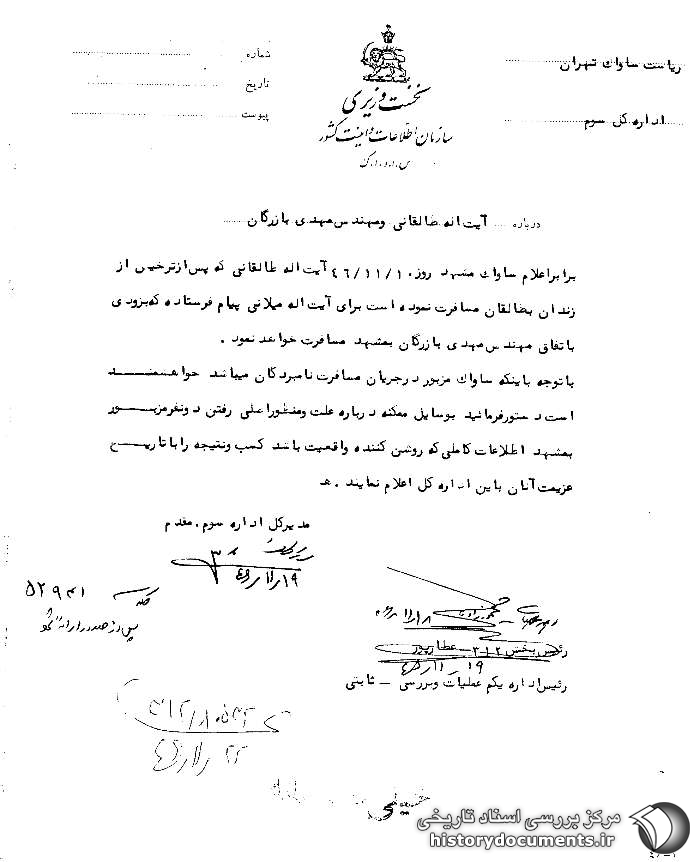 ریاست ساواک تهران
اداره کل سوم
نخست وزیری
سازمان اطلاعات و امنیت کشور
س.ا.و.ا.ک
شماره
تاریخ
پیوست
درباره آیت اله طالقانی ومهندس مهدی بازرگان
برابر اعلام ساواک مشهد روز ۴۶/۱۱/۱۰ آیت اله طالقانی که پس از ترخیص از
زندان بطالقان مسافرت نموده است برای آیت اله میلانی پیام فرستاده که بزودی
باتفاق مهندس مهدی بازرگان بمشهد مسافرت خواهد نمود .
با توجه باینکه ساواک مزبور درجریان مسافرت نامبردگان میباشد خواهشمند
است دستورفرمائید بوسایل ممکنه درباره علت ومنظور اصلی رفتن دونفر مزبور
بمشهد اطلاعات کاملی که روشن کننده واقعیت باشد کسب ونتیجه را با تاریخ
عزیمت آنان باین اداره کل اعلام نمایند . هـ
مدیرکل اداره سوم . مقدم
۱۹/۱۱/۴۶
۵۲۹۳۱
پس از صدور ارائه شود
۱۸/۱۱/
رئیس بخش ۳۱۲ – عطارپور
۱۹/۱۱/۴۶
رئیس اداره یکم عملیات وبررسی – ثابتی
۲۲/۱۱/۴۶
مرکز بررسی اسناد تاریخی
historydocuments.ir